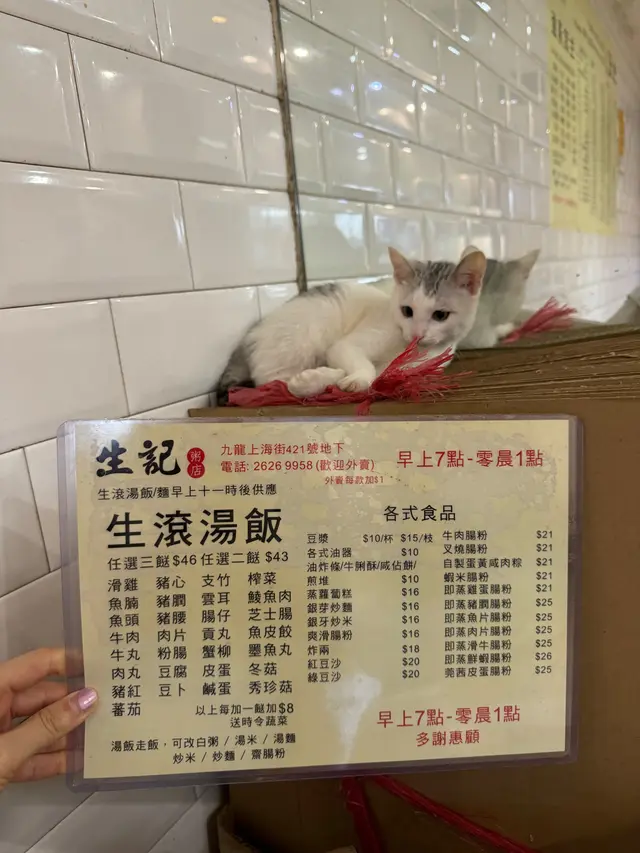 生記 粥店
九龍上海街421號地下
電話: 2626 9958 (歡迎外賣)
外賣每款加$1
早上7點-零晨1點
生滾湯飯/麵早上十一時後供應
生滾湯飯
任選三餸$46 任選二餸$43
滑雞 豬心 支竹 榨菜
魚腩 豬膶 雲耳 鯪魚肉
魚頭 豬腰 腸仔 芝士腸
牛肉 肉片 貢丸 魚皮餃
牛丸 粉腸 蟹柳 墨魚丸
肉丸 豆腐 皮蛋 冬菇
豬紅 豆卜 鹹蛋 秀珍菇
蕃茄 以上每加一餸加$8
送時令蔬菜
湯飯走飯，可改白粥 / 湯米 / 湯麵
炒米 / 炒麵 / 齋腸粉
各式食品
豆漿 $10/杯 $15/枝
各式油器 $10
油炸條/牛脷酥/咸佔餅/
煎堆 $10
蒸蘿蔔糕 $16
銀芽炒麵 $16
銀牙炒米 $16
爽滑腸粉 $16
炸兩 $18
紅豆沙 $20
綠豆沙 $20
牛肉腸粉 $21
叉燒腸粉 $21
自製蛋黃咸肉粽 $21
蝦米腸粉 $21
即蒸雞蛋腸粉 $21
即蒸豬膶腸粉 $25
即蒸魚片腸粉 $25
即蒸肉片腸粉 $25
即蒸滑牛腸粉 $25
即蒸鮮蝦腸粉 $26
莞茜皮蛋腸粉 $25
早上7點-零晨1點
多謝惠顧